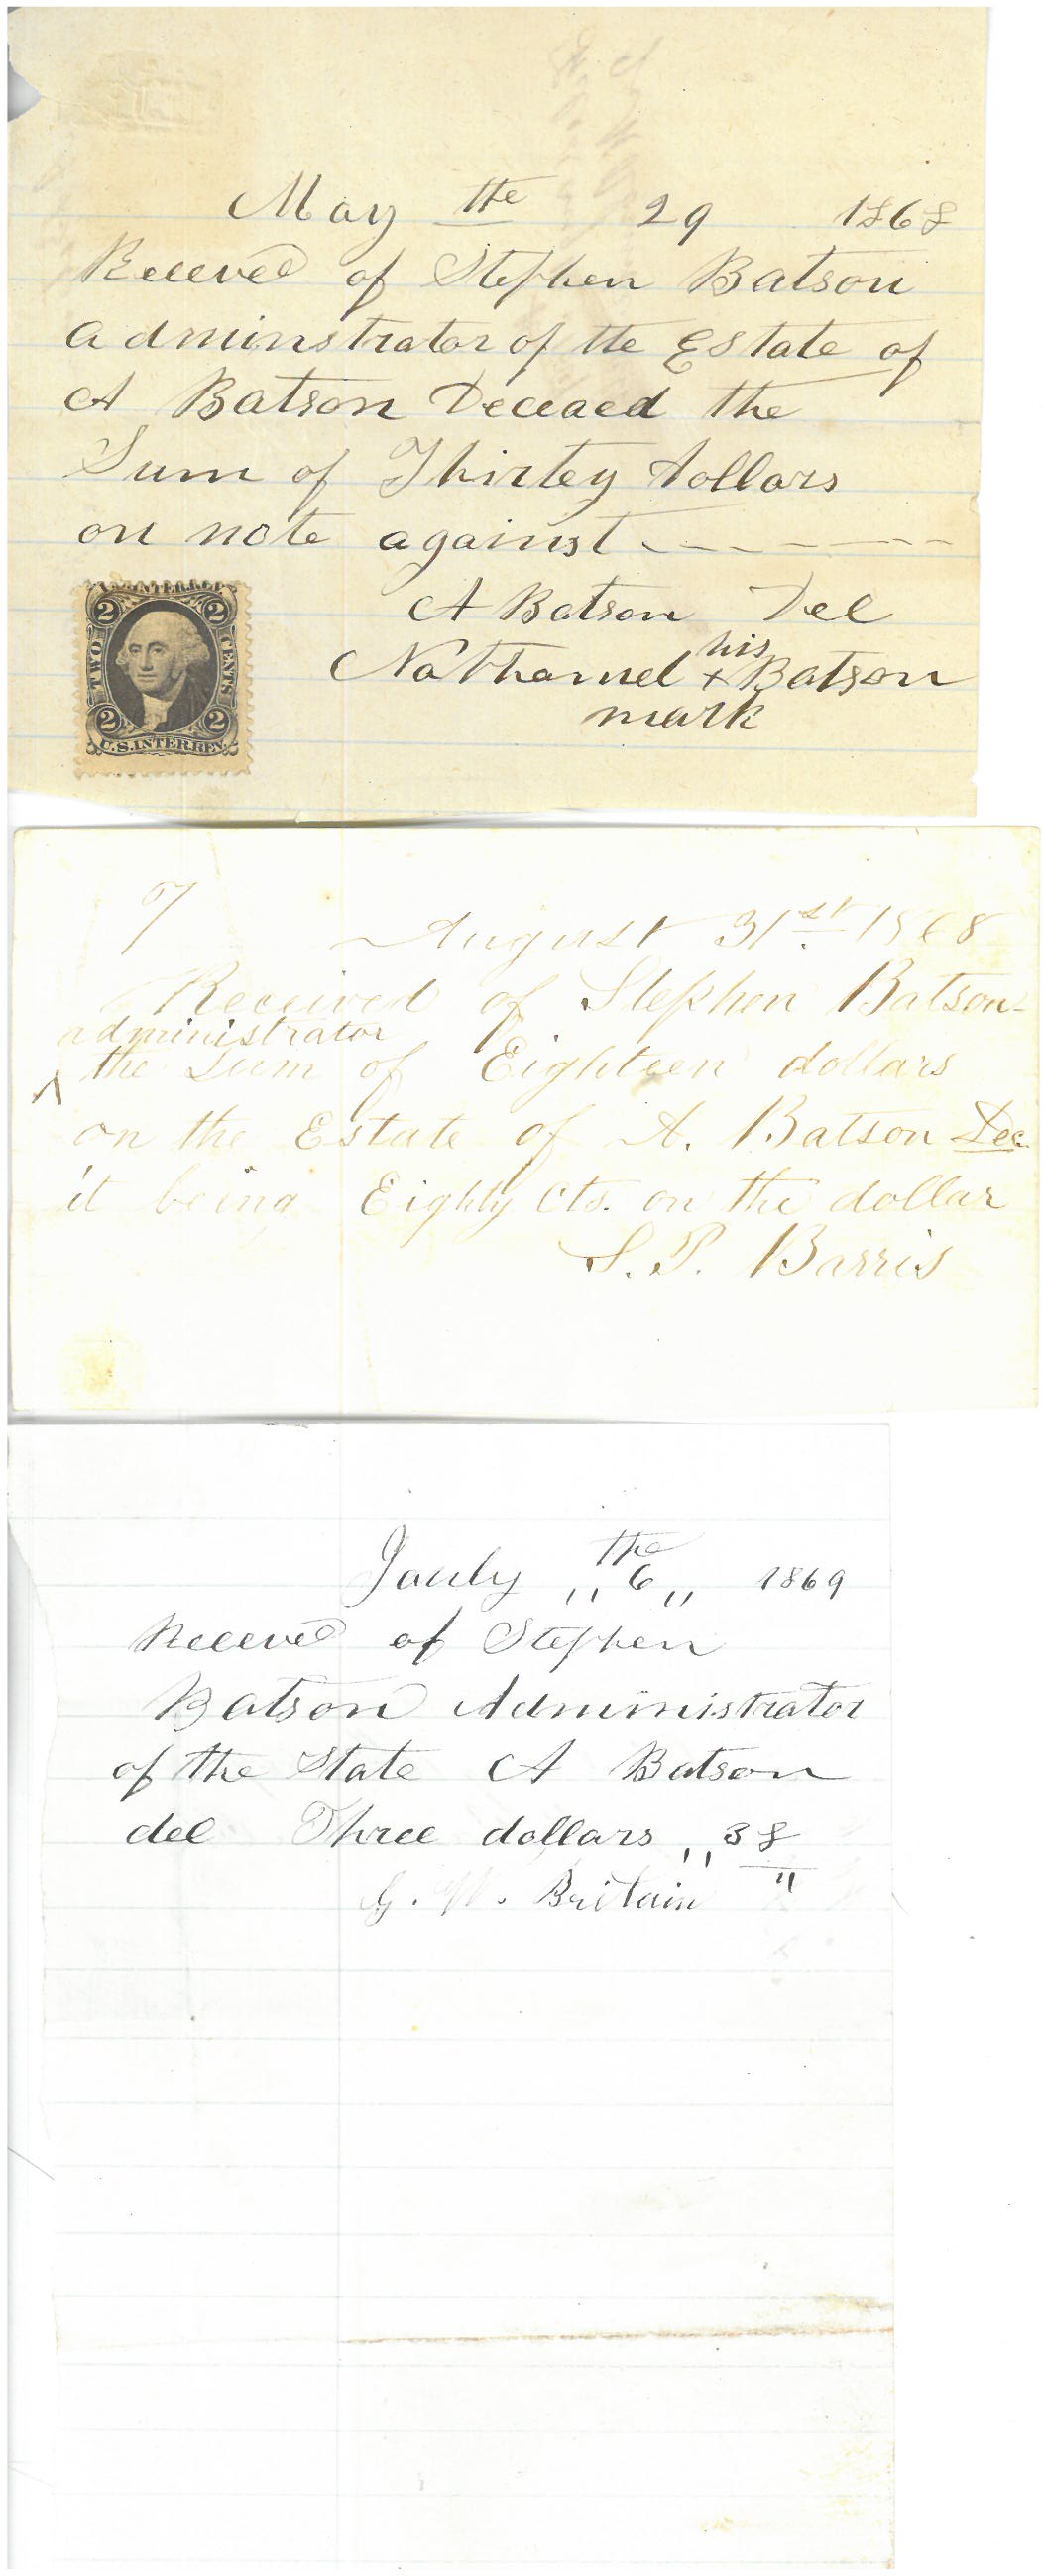 May the 29 1868
Receved of Stephen Batson
adminstrator of the Estate of
A Batson Deceaed the
Sum of Thirtey dollars
on note against
A Batson Del
his
Nathaniel + Batson
mark
U.S. INTER. REV.
2 2
TWO CENTS
2 2
U.S. INTER. REV.
7
August 31st. 1868
Received of Stephen Batson
administrator
^ the Sum of Eighteen dollars
on the Estate of A. Batson Dec.
it being Eighty Cts. on the dollar
S. P. Barris
the
Jauly ,, 6 ,, 1869
Receved of Stephen
Batson Administrator
of the State A Batson
del Three dollars ,, 3 $
G. W. Britain "